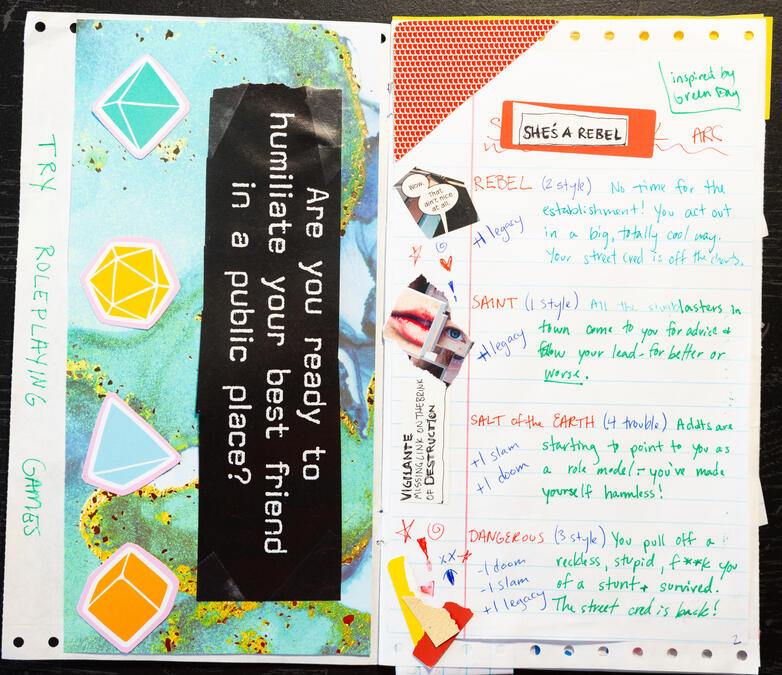 TRY ROLEPLAYING GAMES
Are you ready to
humiliate your best friend
in a public place?
inspired by
Green Day
SHE'S A REBEL
ARC
Wow.
That
ain't nice
at all.
REBEL (2 style) No time for the
establishment! You act out
in a big, totally cool way.
Your street cred is off the charts.
+1 legacy
SAINT (1 style) All the
in
town come to you for advice &
follow your lead - for better or
worse.
+1 legacy
VIGILANTE
MISSING LINK ON THE BRINK
OF DESTRUCTION
SALT of the EARTH (4 trouble) Adults are
starting to point to you as
a role model - you've made
yourself harmless!
+1 slam
+1 doom
DANGEROUS (3 style) You pull off a
reckless, stupid, f**k you
of a stunt + survived.
The street cred is back!
-1 doom
-1 slam
+1 legacy
xx
2